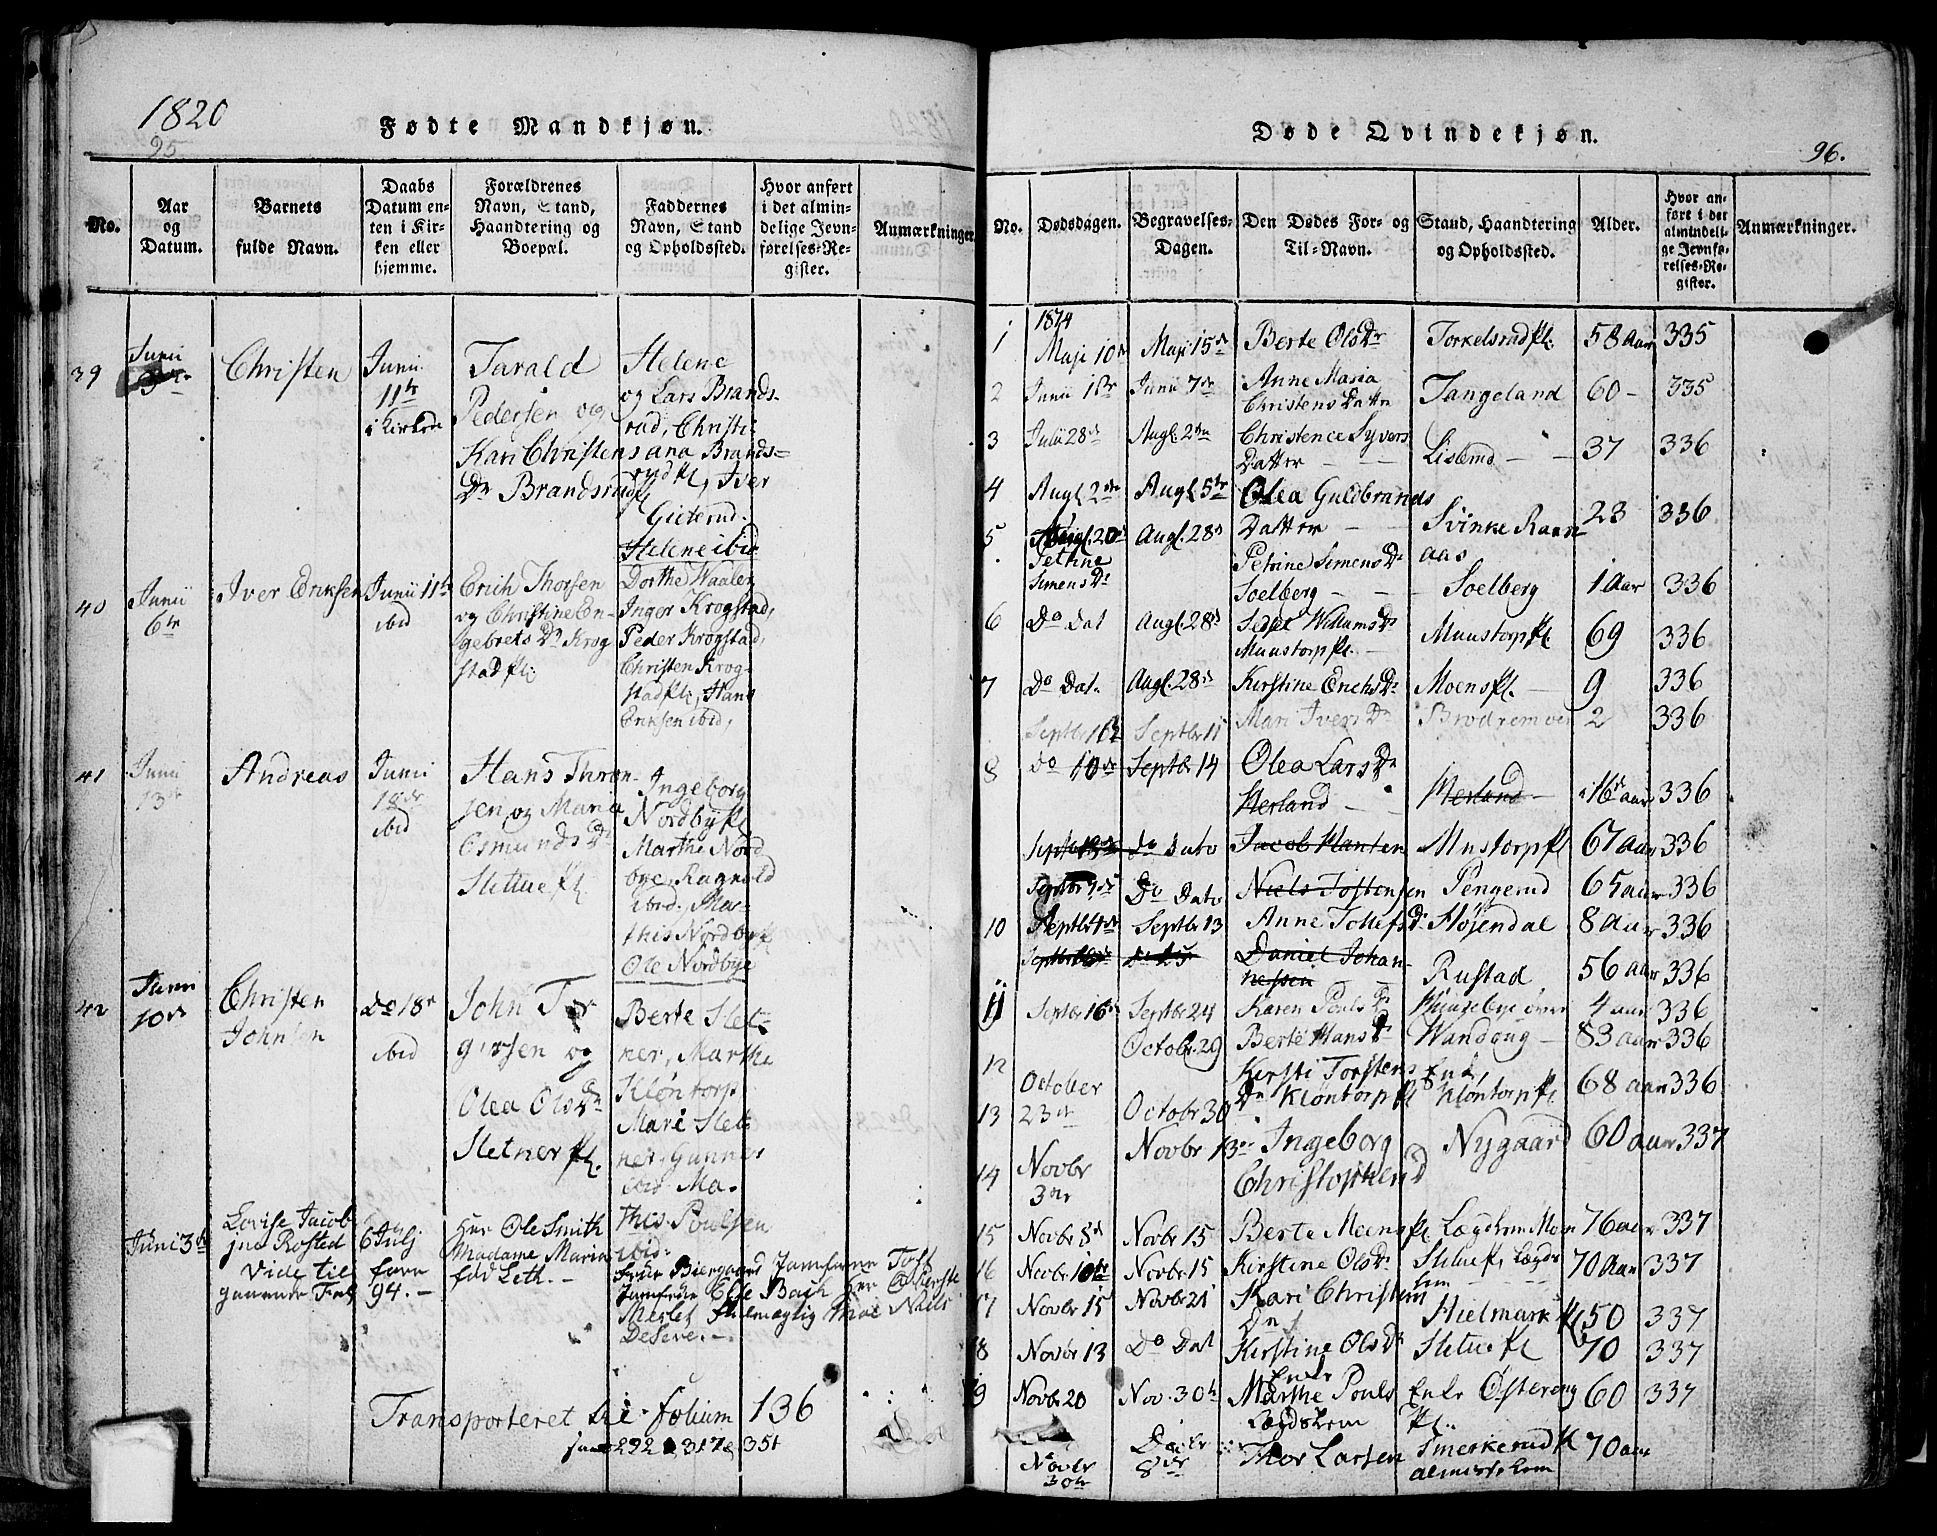 1820
95
Fødte Mandkjøn.
No.
Aar
og
Datum.
Barnets
fulde Navn.
Daabs
Datum en-
ten i Kir-
ken eller
hjemme.
Forældrenes
Navn, Stand,
Haandtering og
Boepæl.
Faddernes
Navn, Stand
og Opholdssted.
Hvor anført
i det almin-
delige Jevn-
førelses-Re-
gister.
Anmærkninger.
39
Junii
Christen
Junii
11te
i Kirken
Tarald
Pedersen og
Kari Christens
Dr Brandsrudpl
Helene
og Lars Brands-
rud, Christi-
ana Brands=
rudpl, Iver
Gieterud.
Helene ibid
40
Junii
6te
Iver Eriksen
Junii 11te
ibid
Erich Thorsen
og Christine En-
gebrets Dr Krog
stadpl.
Dorthe Waaler
Inger Krogstad,
Peder Krogstad,
Christen Krog-
stadpl, Hans
Eriksen ibid,
41
Junii
13de
Andreas
Junii
18de
ibid
Hans Thron-
sen og Maria
Osmunds Dr
Sletue pl.
Ingeborg
Nordbypl
Marthe Nord
bye, Ragnild
ibid. Ma-
this Nordbye
Ole Nordbye
42
Junii
10de
Christen
Johnsen
Do 18de
ibid
John Tor
gersen og
Olea Ols Dr
Sletner pl.
Berte Slet-
ner, Marthe
Kløntorp
Mari Slet-
ner Gunner
ibid. Ma-
this Poulsen
ibid.
Juni 3de
Lovise Jacob
ine Rosted
Vide til
6 Julj
94.-
Her Ole Smith
Madame Maria
fød Leth.-
Transporteret til folium 136
292 317 351
Døde Qvindekjøn.
96.
No.
Dødsdagen.
Begravelses-
Dagen.
Den Dødes For- og
Til-Navn.
Stand, Haandtering
og Opholdssted.
Alder.
Hvor an-
ført i det
almindeli-
ge Jevnfø-
relses-Re-
gister.
Anmærkninger.
1814
1 Maji 10de Maji 15de Berte Ols Dr Torkelsrudpl. 58 Aar 335
2 Junii 1ste Junii 7de Anne Maria
Christens Datter Tangeland 60 - 335
3 Julii 28de Augl. 2den Christence Syvers
Datter Liserud 37 336
4 Augl 2den Augl 5te Olea Guldbrands
Datter Svinke Raas
aas 23 336
5 Augl. 20de Augl. 28de
Petrine
Simens Dr
Petrine Simens Dr
Soelberg Soelberg 1 Aar 336
6 Do Dat Augl. 28de Sedsel Willums Dr
Muustorp pl. Muustorp pl 69 336
7 Do Dat. Augl. 28de Kirstine Erichs Dr Moenspl. 9 336
Septbr 10 Septbr 11 Mari Ivers Dr 2 336
8 Do 10de Septbr 14 Olea Lars Dr
Herland Herland 16 aar 336
Do Dato Jacob Hansen Mustorp pl 67 aar 336
Do Dato Niels Tostensen Pengerud 65 aar 336
10 Septbr 4de Septbr 13 Anne Tollefs Dr Højendal 8 Aar 336
Daniel Johan-
nessen Rustad 56 aar 336
11 Septbr 16de Septbr 24 Karen Pouls Dr 4 aar 336
12 Octobr. 29 Berte Hans Dr Wandoug - 83 aar 336
13 October
23de Octobr 30 Kirsti Torstens
Dr Kløntorp pl Enke,
Kløntorp pl 68 aar 336
14 Novbr
3de Novbr 13de Ingeborg
Christophers Dr Nygaard 60 aar 337
15 Novbr 8de Novbr 15 Berte Meenspl Lægdlem Moen 76 aar 337
16 Novbr 10de Novbr 15 Kirstine Ols Dr Sletue pl Lægds
lem 70 Aar 337
17 Novbr 15 Novbr 21 Kari Christens
Dr Hielmark pl 50 337
18 Novbr 13 Do Dat Kirstine Ols Dr
Enke Sletue pl 70 337
19 Novbr 20 Nov. 30te Marthe Pouls
Lægdslem Enke Østereng
pl. 60 337
Novbr
30te Decbr
8de Thor Larsen Smerkerud pl
almisse lem 70 aar